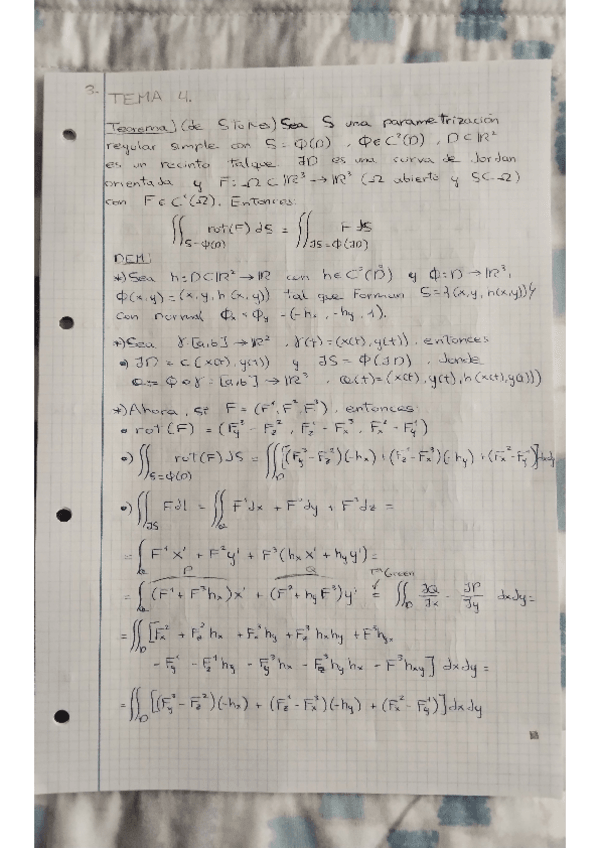 3.
TEMA 4.
Teorema) (de STOKES) Sea S una parametrización
regular simple con S = Φ(D), Φ ∈ C²(D), D ⊂ ℝ²
es un recinto tal que ∂D es una curva de Jordan
orientada y F: Ω ⊂ ℝ³ → ℝ³ (Ω abierto y S ⊂ Ω)
con F ∈ C¹(Ω). Entonces:
∬_{S=Φ(D)} rot(F) dS = ∬_{∂S=Φ(∂D)} F dS
DEM:
*) Sea h: D ⊂ ℝ² → ℝ con h ∈ C²(D) y Φ: D → ℝ³,
Φ(x,y) = (x, y, h(x,y)) tal que forman S = {(x, y, h(x,y))}
con normal Φₓ × Φ_y = (-hₓ, -h_y, 1).
*) Sea γ: [a,b] → ℝ², γ(t) = (x(t), y(t)), entonces
•) ∂D = c(x(t), y(t)) y ∂S = Φ(∂D), donde
= Φ ∘ γ : [a,b] → ℝ³, (t) = (x(t), y(t), h(x(t), y(t)))
*) Ahora, si F = (F¹, F², F³), entonces:
• rot(F) = (F³_y - F²_z, F¹_z - F³_x, F²_x - F¹_y)
•) ∬_{S=Φ(D)} rot(F) dS = ∬_D [(F³_y - F²_z)(-hₓ) + (F¹_z - F³_x)(-h_y) + (F²_x - F¹_y)] dxdy
•) ∬_{∂S} F dl = ∬ F¹dx + F²dy + F³dz =
= ∫ F¹x' + F²y' + F³(hₓx' + h_y y') =
P Q Green
= ∫ (F¹ + F³hₓ)x' + (F² + h_y F³)y' = ∬_D ∂Q/∂x - ∂P/∂y dxdy =
= ∬_D [F²_x + F²_z hₓ + F³_x h_y + F³_z hₓh_y + F³h
- F¹_y - F¹_z h_y - F³_y hₓ - F³_z h_y hₓ - F³h_xy] dxdy =
= ∬_D [(F³_y - F²_z)(-hₓ) + (F¹_z - F³_x)(-h_y) + (F²_x - F¹_y)] dxdy